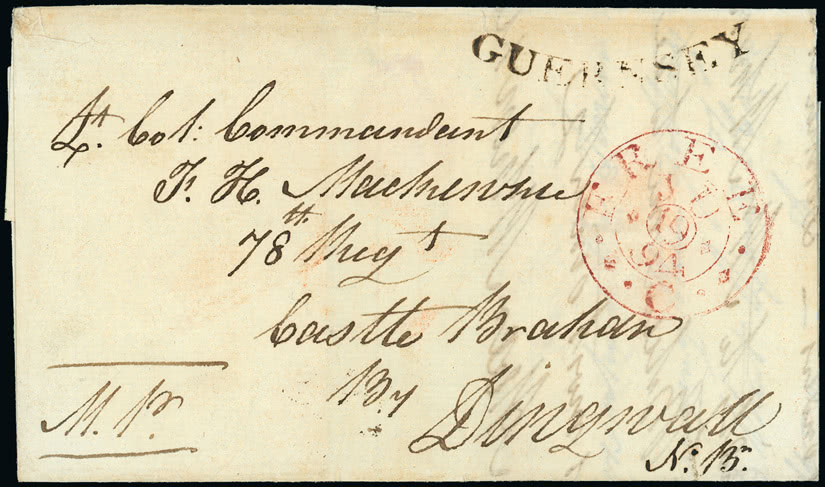 GUERNSEY
Lt. Col: Commandant
F. H. Mackenzie
78th Regt
Castle Brahan
By
Dingwall
No. Bn.
M.P.
FREE
JU
19
94
C